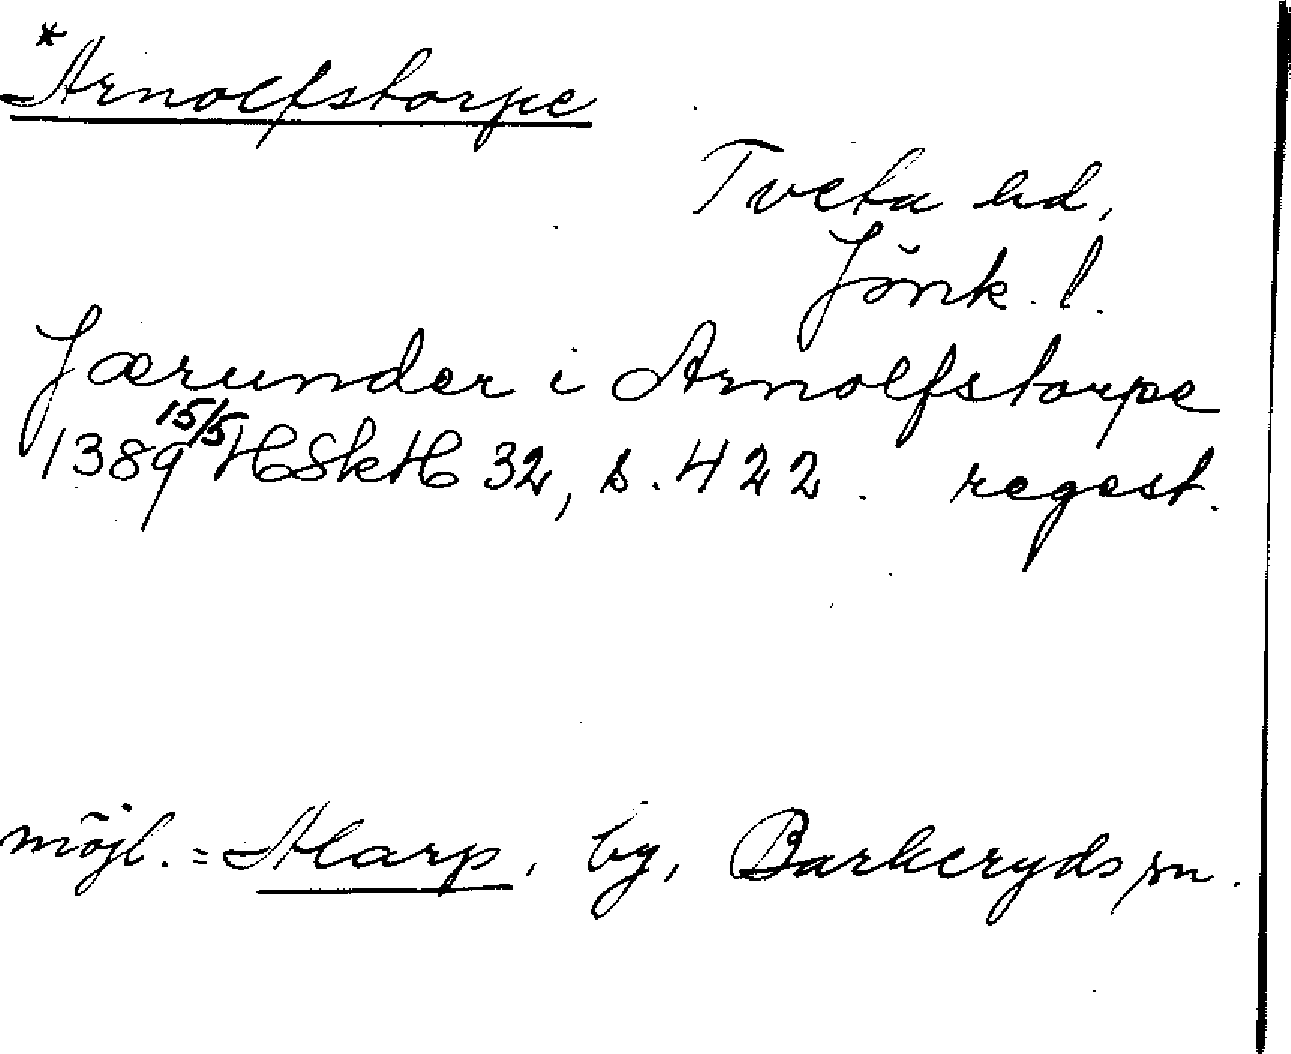 *Arnolfstorpe
Tveta hd,
Jönk. l.
Jærunder i Arnolfstorpe
1389 15/5 HSkH 32, s. 422. regest.
möjl. = Alarp, by, Barkeryds sn.